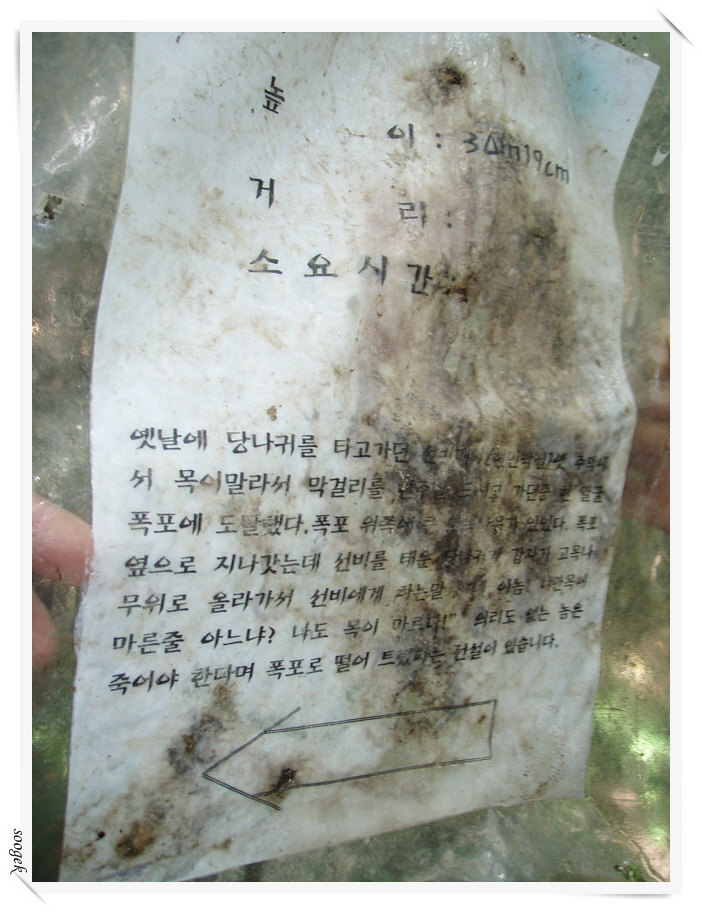 높 이 : 34m19cm
거 리 :
소 요 시 간 :
옛날에 당나귀를 타고가던
서 목이말라서 막걸리를 가던중
폭포에 도달했다.폭포 위쪽에 큰 있었다. 폭포
옆으로 지나갓는데 선비를 태운 당나귀가 갑자기 고목나
무위로 올라가서 선비에게 하는말 이놈! 너만목이
마른줄 아느냐? 나도 목이 마르다!" 의리도 없는 놈은
죽어야 한다며 폭포로 떨어 트렸다는 전설이 있습니다.
soogeK